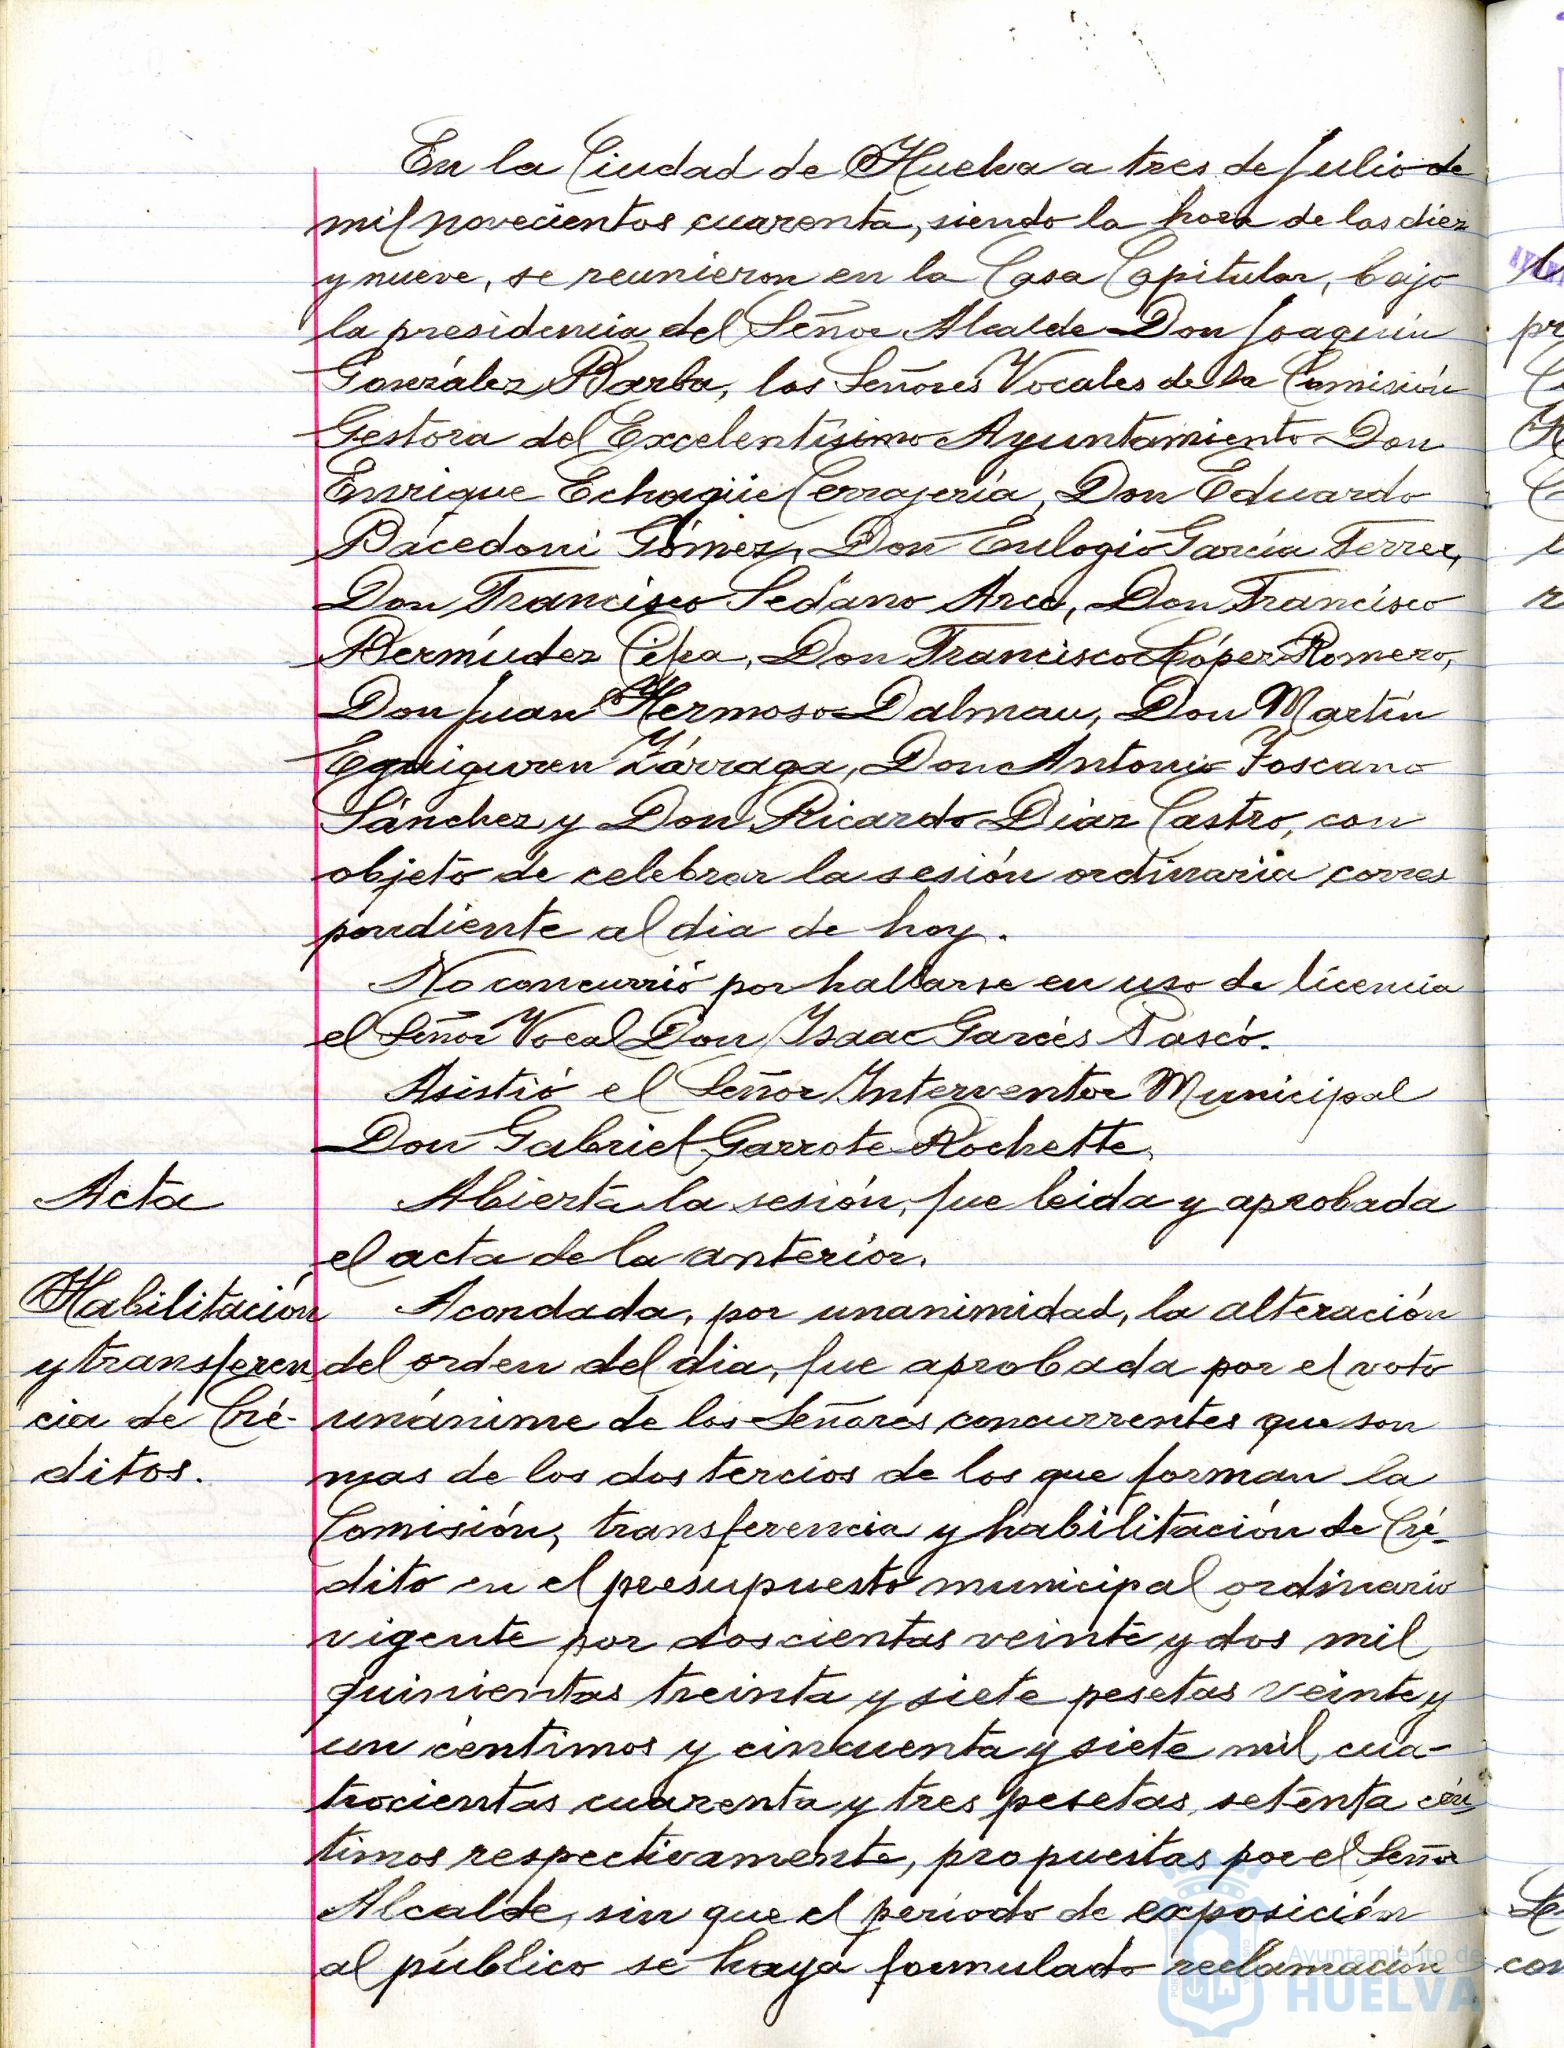 En la Ciudad de Huelva a tres de Julio de
mil novecientos cuarenta, siendo la hora de las diez
y nueve, se reunieron en la Casa Capitular, bajo
la presidencia del Señor Alcalde Don Joaquín
González Barba, los Señores Vocales de la Comisión
Gestora del Excelentísimo Ayuntamiento Don
Enrique Echagüe Cerrajería, Don Eduardo
Bácedoni Gómez, Don Eulogio García Ferrer,
Don Francisco Sedano Arce, Don Francisco
Bermúdez Don Francisco López Romero,
Don Juan Hermoso Dalmau, Don Martín
Eguiguren Zárraga, Don Antonio Toscano
Sánchez y Don Ricardo Díaz Castro, con
objeto de celebrar la sesión ordinaria corres
pondiente al dia de hoy.
No concurrió por hallarse en uso de licencia
el Señor Vocal Don Isaac Garcés Tascó.
Asistió el Señor Interventor Municipal
Don Gabriel Garrote Rochette.
Acta
Abierta la sesión, fue leida y aprobada
el acta de la anterior.
Habilitación
y transferen
cia de Cré-
ditos.
Acordada, por unanimidad, la alteración
del orden del dia, fue aprobada por el voto
unánime de los Señores concurrentes que son
mas de los dos tercios de los que forman la
Comisión, transferencia y habilitación de Cré-
dito en el presupuesto municipal ordinario
vigente por doscientas veinte y dos mil
quinientas treinta y siete pesetas veinte y
un céntimos y cincuenta y siete mil cua-
trocientas cuarenta y tres pesetas, setenta cén
timos respectivamente, propuestas por el Señor
Alcalde, sin que el período de exposición
al público se haya formulado reclamación
Ayuntamiento de
HUELVA